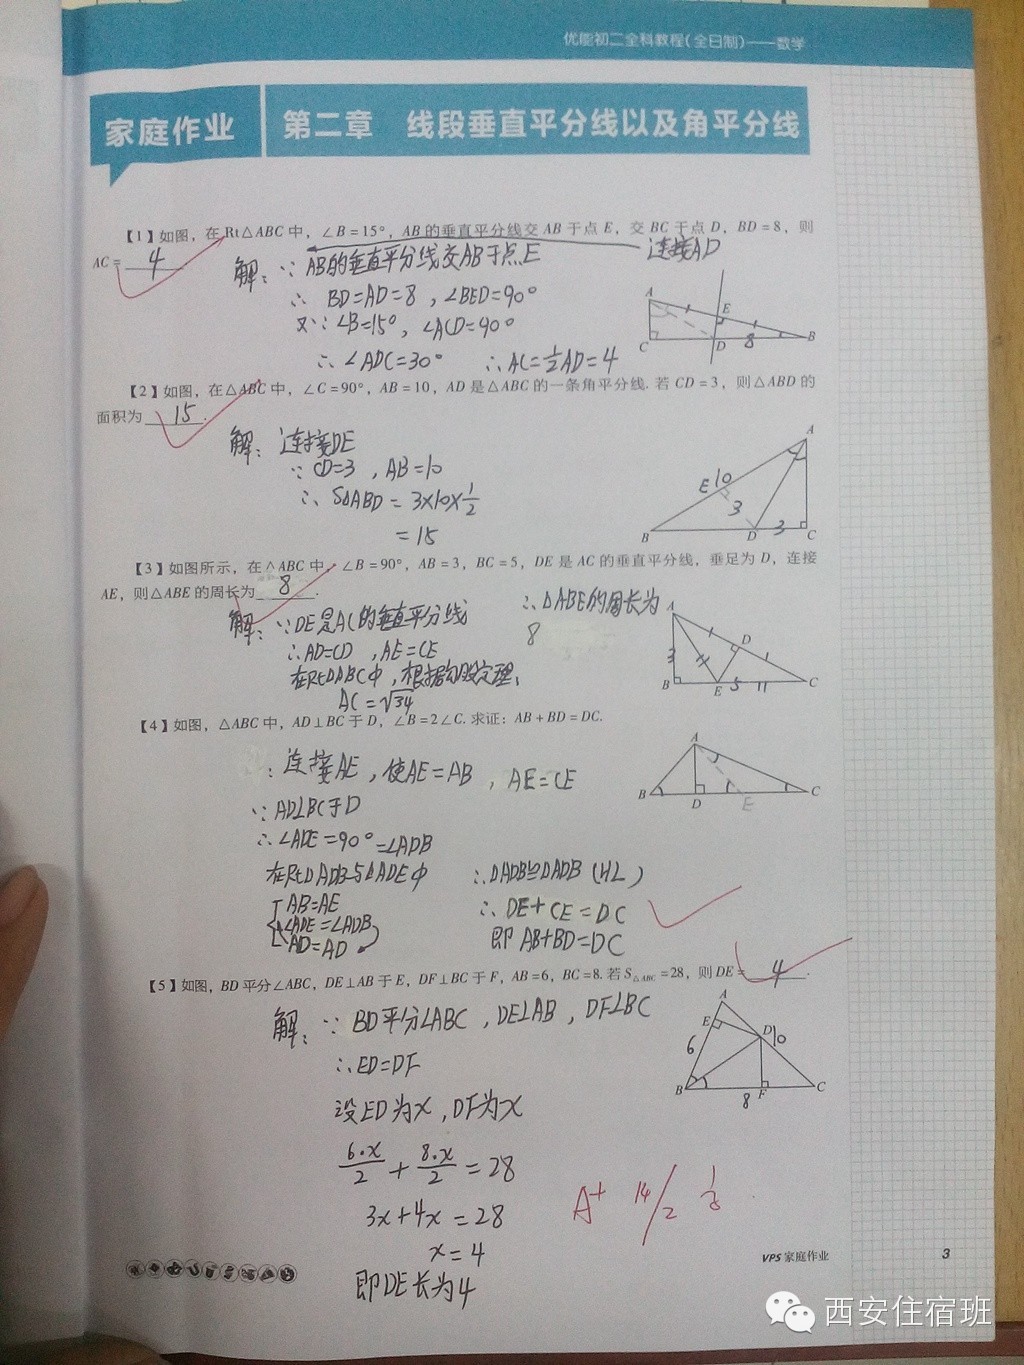 优能初二全科教程(全日制)——数学
家庭作业
第二章 线段垂直平分线以及角平分线
【1】如图，在Rt△ABC中，∠B=15°，AB的垂直平分线交AB于点E，交BC于点D，BD=8，则
AC= 4
连接AD
解：∵ AB的垂直平分线交AB于点E
∴ BD=AD=8，∠BED=90°
又∵∠B=15°，∠ACD=90°
∴∠ADC=30° ∴AC=½AD=4
A
E
C
D
8
B
【2】如图，在△ABC中，∠C=90°，AB=10，AD是△ABC的一条角平分线.若CD=3，则△ABD的
面积为 15 .
解：连接DE
∵CD=3，AB=10
∴S△ABD=3×10×½
=15
A
E
10
3
B
D
3
C
【3】如图所示，在△ABC中，∠B=90°，AB=3，BC=5，DE是AC的垂直平分线，垂足为D，连接
AE，则△ABE的周长为 8 .
解：∵DE是AC的垂直平分线
∴AD=CD，AE=CE
在Rt△ABC中，根据勾股定理，
AC=√34
∴△ABE的周长为
8
A
D
3
B
E
5
C
【4】如图，△ABC中，AD⊥BC于D，∠B=2∠C.求证：AB+BD=DC.
：连接AE，使AE=AB，AE=CE
∵AD⊥BC于D
∴∠ADE=90°=∠ADB
在Rt△ADB与△ADE中
AB=AE
∠ADE=∠ADB
AD=AD
∴△ADB≌△ADB (HL)
∴DE+CE=DC
即AB+BD=DC
A
B
D
E
C
【5】如图，BD平分∠ABC，DE⊥AB于E，DF⊥BC于F，AB=6，BC=8.若S△ABC=28，则DE= 4 .
解：∵BD平分∠ABC，DE⊥AB，DF⊥BC
∴ED=DF
设ED为x，DF为x
6·x/2 + 8·x/2 = 28
3x+4x=28
x=4
即DE长为4
A
E
D
10
6
B
F
C
8
A+ 14/2
VPS 家庭作业
3
西安住宿班